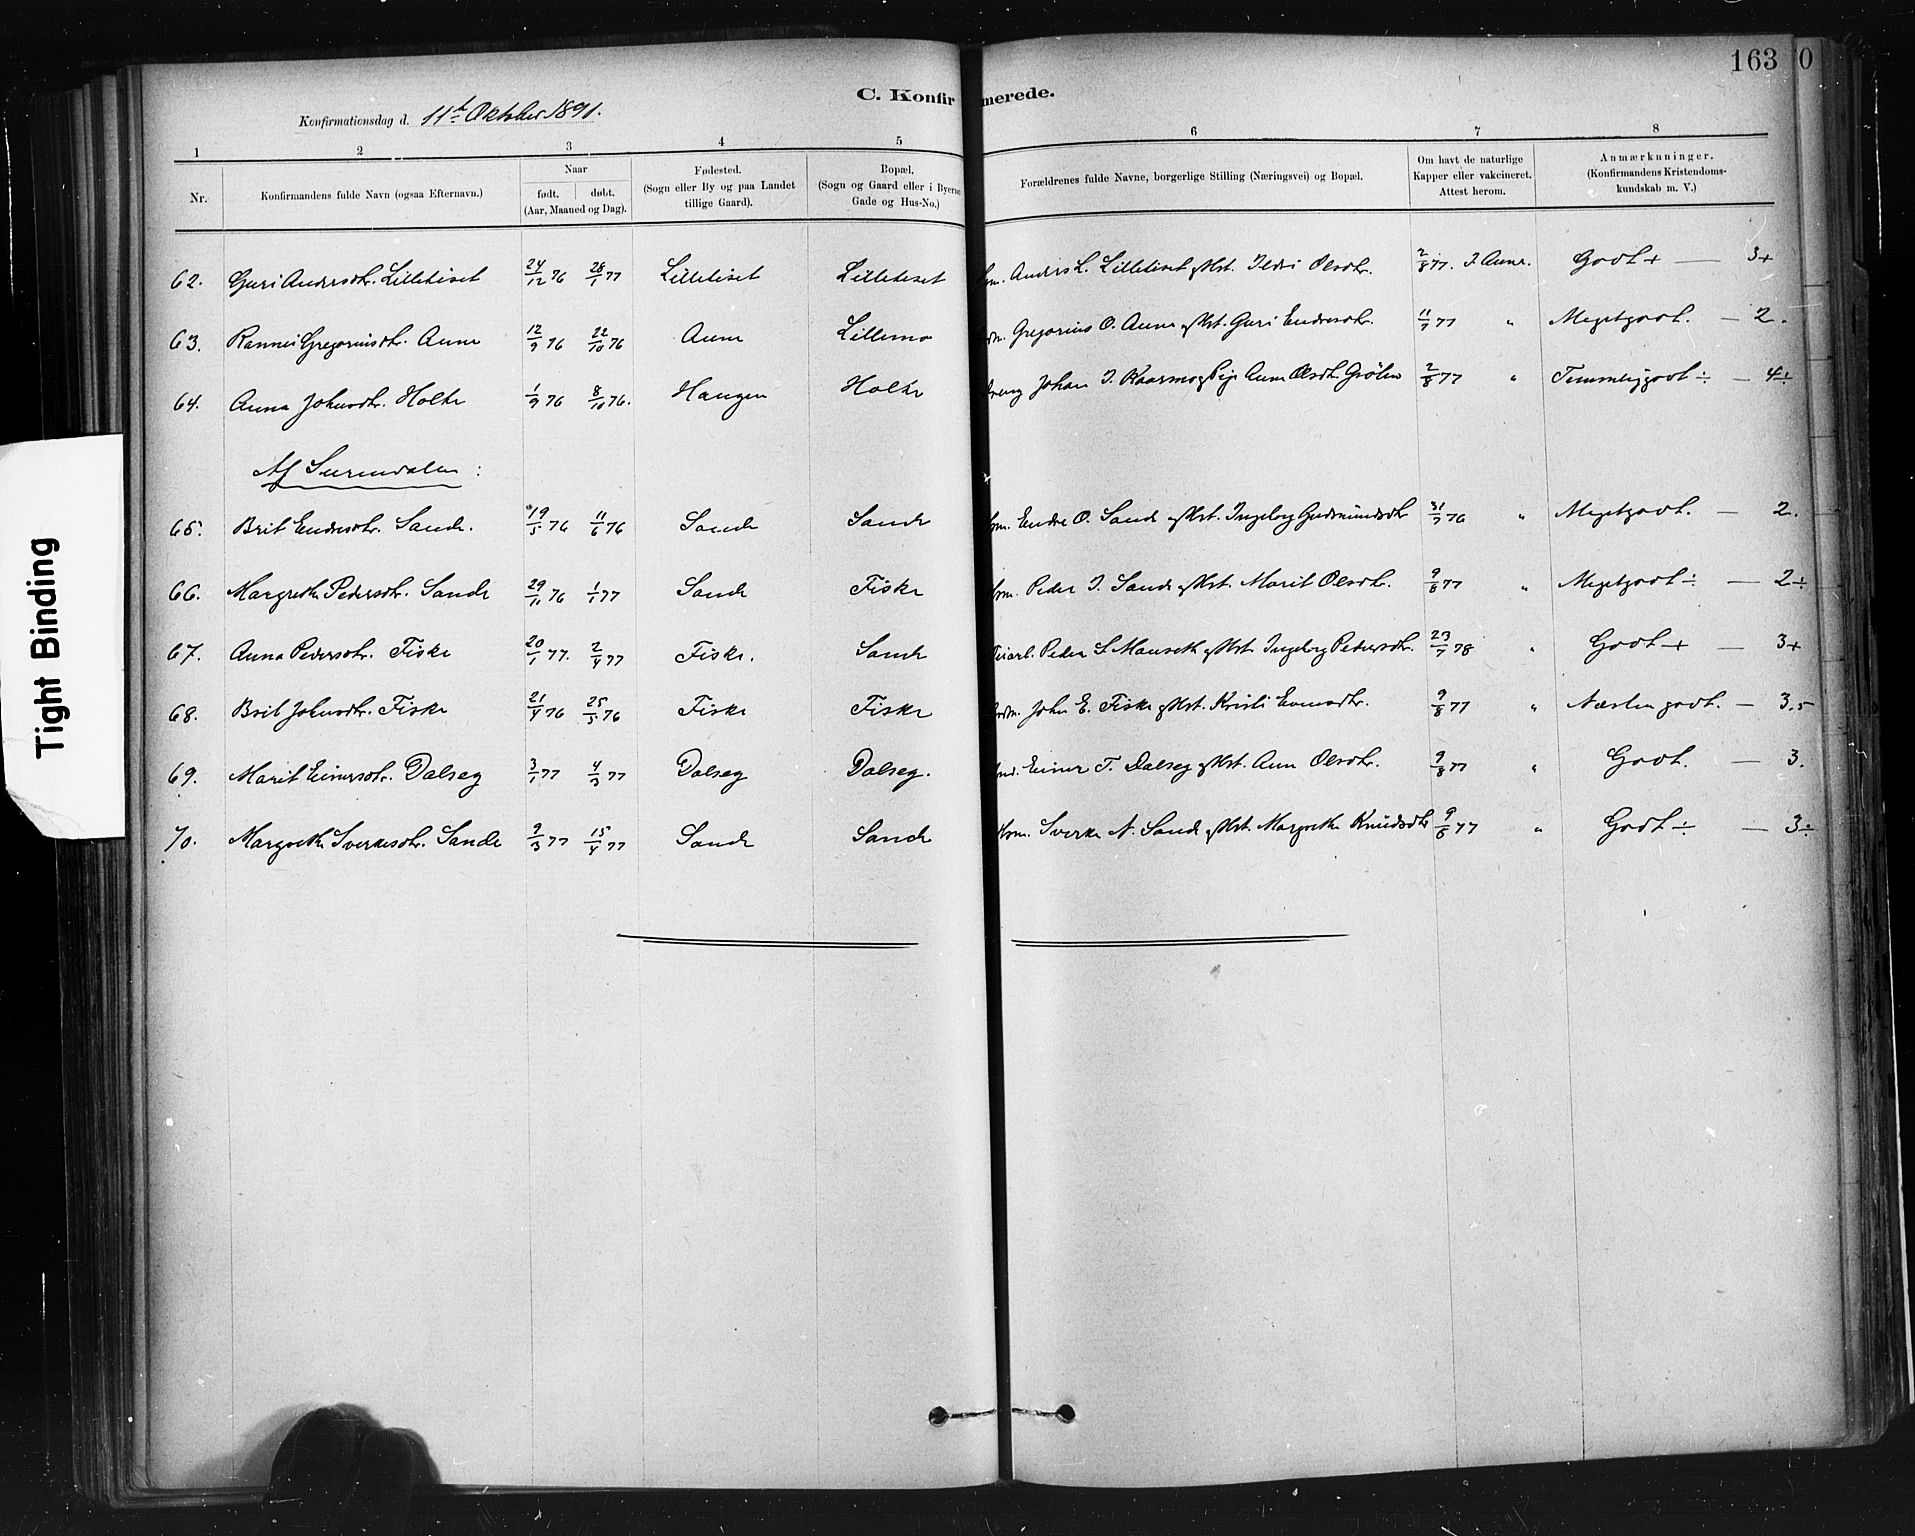 163 0
C. Konfirmerede.
Konfirmationsdag d. 11te Oktober 1891.
1 2 3 4 5 6 7 8
Nr. Konfirmandens fulde Navn (ogsaa Efternavn.) Naar født. døbt. (Aar, Maaned og Dag). Fødested. (Sogn eller By og paa Landet tillige Gaard). Bopæl. (Sogn og Gaard eller i Byerne Gade og Hus-No.) Forældrenes fulde Navne, borgerlige Stilling (Næringsvei) og Bopæl. Om havt de naturlige Kapper eller vakcineret. Attest herom. Anmærkninger. (Konfirmandens Kristendomskundskab m. V.)
62. Guri Andersdtr. Lilletiset 24/12 76 28/1 77 Lilletiset Lilletiset Anders L. Lilletiset og Kst. Ildri Olsdtr. 2/8 77. I. Aune. Godt + — 3+
63. Rannei Gregoriusdtr. Aune 12/9 76 22/10 76 Aune Lillemo Gregorius O. Aune og Kst. Guri Endresdtr. 11/7 77 " Megetgodt. — 2.
64. Anna Johnsdtr. Holte 1/9 76 8/10 76. Haugen Holte Johan I. Kaarmo og Pige Ane Olsdtr. Grøten 2/8 77 " Temmeliggodt ÷ — 4÷
Af Surendalen :
65. Brit Endresdtr. Sande. 19/5 76 11/6 76 Sande Sande Endre O. Sande og Kst. Ingeborg Gudmundsdtr 31/7 76 " Megetgodt. — 2.
66. Margrethe Pedersdtr. Sande 29/11 76 1/1 77 Sande Fiske Peder I. Sande og Kst. Marit Olsdtr. 9/8 77 " Megetgodt ÷ — 2÷
67. Anna Pedersdtr. Fiske 20/1 77. 2/4 77 Fiske. Sande Peder S. Mauseth og Kst. Ingeborg Pedersdtr. 23/7 78 " Godt + — 3+
68. Brit Johnsdtr. Fiske 21/4 76 25/5 76 Fiske Fiske John E. Fiske og Kst. Kristi Evensdtr. 9/8 77 " Næsten godt. — 3.5
69. Marit Einersdtr. Dalseg 3/1 77 4/3 77 Dalseg Dalseg. Einer T. Dalseg og Kst. Ane Olsdtr. 9/8 77 " Godt. — 3.
70. Margrethe Sverkesdtr. Sande 9/3 77 15/4 77 Sande Sande Sverke N. Sande og Kst. Margrethe Knudsdtr 9/8 77 " Godt ÷ — 3÷
Tight Binding